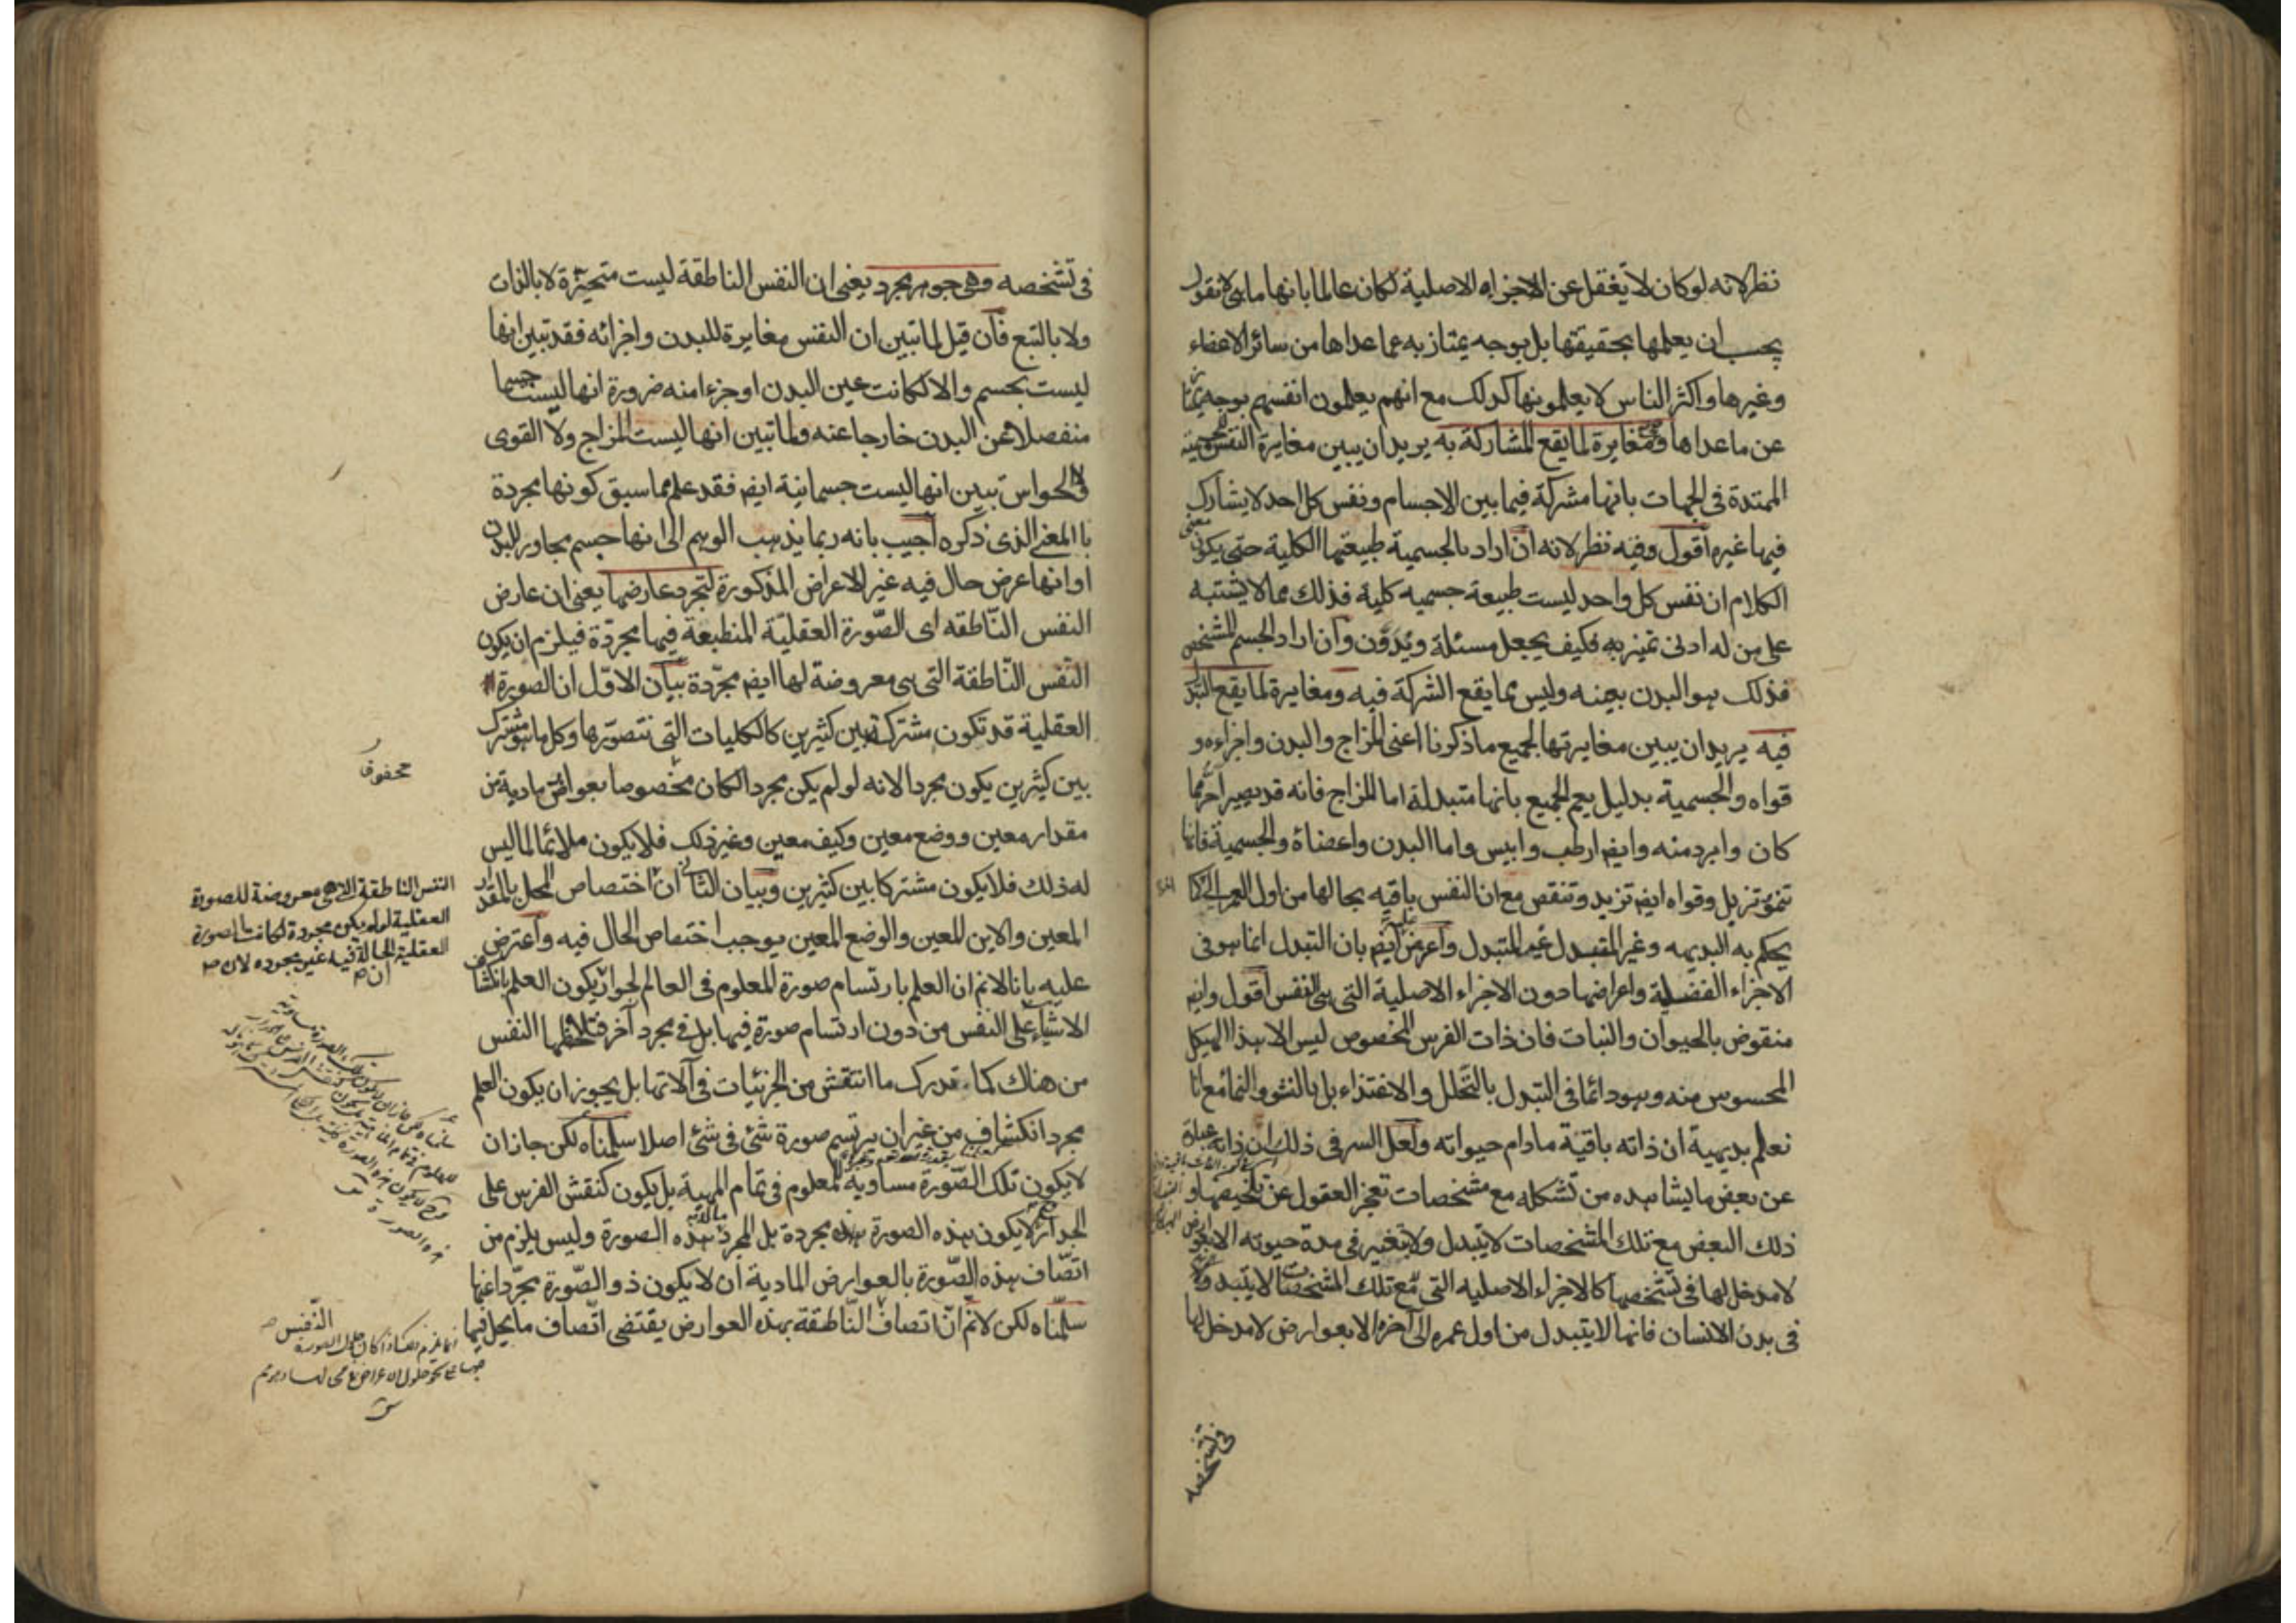 نظر لانه لو كان لا يغفل عن الاجزاء الاصلية لكان عالما بانها ماهى لا نقول
يجب ان يعلمها بحقيقتها بل بوجه يمتاز به عما عداها من سائر الاعضاء
وغيرها واكثر الناس لا يعلمونها كذلك مع انهم يعلمون انفسهم بوجه يمتاز
عن ماعداها ومغايرة لما يقع المشاركة به يريد ان يبين مغايرة النفس للجسمية
الممتدة فى الجهات بانها مشتركة فيما بين الاجسام ونفس كل احد لا يشارك
فيها غيره اقول وفيه نظر لانه ان اراد بالجسمية طبيعتها الكلية حتى يكون معنى
الكلام ان نفس كل واحد ليست طبيعة جسميه كلية فذلك مما لا يشتبه
على من له ادنى تميز به فكيف يجعل مسئلة ويدون وان اراد الجسم المشخص
فذلك هو البدن بعينه وليس مما يقع الشركة فيه ومغايرة لما يقع التبدل
فيه يريد ان يبين مغايرتها لجميع ما ذكرنا اعنى المزاج والبدن واجزاءه و
قواه والجسمية بدليل يعم الجميع بانها متبدلة اما المزاج فانه قد يصير احر مما
كان وابرد منه وايض ارطب وايبس واما البدن واعضاؤه والجسمية فانها
تنمو تزبل وقواه ايض تزيد وتنقص مع ان النفس باقيه بحالها من اول العمر الى آخر كما
يحكم به البديهه وغير المتبدل غير المتبدل واعرض عليه ايض بان التبدل انما هو فى
الاجزاء الفضلية واعراضها دون الاجزاء الاصلية التى هى النفس اقول وايض
منقوض بالحيوان والنبات فان ذات الفرس المخصوص ليس الا هذا الهيكل
المحسوس منه وهو دائما فى التبدل بالتحلل والاغتذاء بل بالنشو والنما مع انا
نعلم بديهية ان ذاته باقية مادام حيواته ولعل السر فى ذلك ان ذاته عبارة
عن بعض ما يشاهده من تشكله مع مشخصات تعجز العقول عن تلخيصها و
ذلك البعض مع تلك المشخصات لا يتبدل ولا يتغير فى مدة حيوته الا بعوارض
لا مدخل لها فى تشخصها كالاجزاء الاصليه التى مع تلك المشخصات لا يتبدل
فى بدن الانسان فانها لا يتبدل من اول عمره الى آخره الا بعوارض لا مدخل لها
فى تشخصه
فى تشخصه وهى جوهر مجرد يعنى ان النفس الناطقة ليست متحيزة لا بالذات
ولا بالتبع فان قيل لما تبين ان النفس مغايرة للبدن واجزائه فقد تبين انها
ليست بجسم والا لكانت عين البدن او جزءا منه ضرورة انها ليست جسما
منفصلا عن البدن خارجا عنه ولما تبين انها ليست المزاج ولا القوى
والحواس تبين انها ليست جسمانية ايض فقد علم مما سبق كونها مجردة
باالمعنى الذى ذكره اجيب بانه ربما يذهب الوهم الى انها جسم مجاور للبدن
او انها عرض حال فيه غير الاعراض المذكورة لتجرد عارضها يعنى ان عارض
النفس النّاطقه اى الصّورة العقليّة المنطبعة فيها مجرّدة فيلزم ان يكون
النّفس النّاطقة التى هى معروضة لها ايض مجرّدة بيان الاوّل ان الصورة
العقلية قد تكون مشتركة بين كثيرين كالكليات التى نتصوّرها وكل ما هو مشترك
بين كثيرين يكون مجردا لانه لو لم يكن مجردا لكان مخصوصا بعوارض مادية من
مقدار معين ووضع معين وكيف معين وغير ذلك فلا يكون ملائما لما ليس
له ذلك فلا يكون مشتركا بين كثيرين وبيان الثانى ان اختصاص المحل بالمقدار
المعين والاين المعين والوضع المعين يوجب اختصاص الحال فيه واعترض
عليه بانا لانم ان العلم بارتسام صورة المعلوم فى العالم لجواز يكون العلم بانكشاف
الاشياء على النفس من دون ارتسام صورة فيها بل فى مجرد آخر فتلاحظها النفس
من هناك كما تدرك ما انتقش من الجزئيات فى آلاتها بل يجوز ان يكون العلم
مجرد انكشاف من غير ان يرتسم صورة شئ فى شئ اصلا سلمناه لكن جاز ان
لا يكون تلك الصّورة مساوية للمعلوم فى تمام المهية بل يكون كنقش الفرس على
الجدار لا يكون هذه الصورة مجردة بل المجرد ماله هذه الصورة وليس يلزم من
اتّصاف هذه الصّورة بالعوارض المادية ان لا يكون ذو الصّورة مجرّدا عنها
سلّمناه لكن لانم انّ اتصاف النّاطقة بهذه العوارض يقتضى اتّصاف ما يحل فيها
محفوف
النفس الناطقة التى هى معروضة للصورة
العقلية لو لم يكن مجردة لكانت الصورة
العقلية الحالة فيه غير مجرده لان